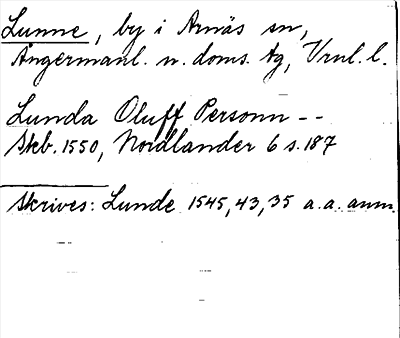 Lunne, by i Arnäs sn,
Ångermanl. n. doms. tg, Vrnl. l.
Lunda Oluff Personn --
Skb. 1550, Nordlander 6 s. 187
Skrives: Lunde 1545, 43, 35 a. a. anm.